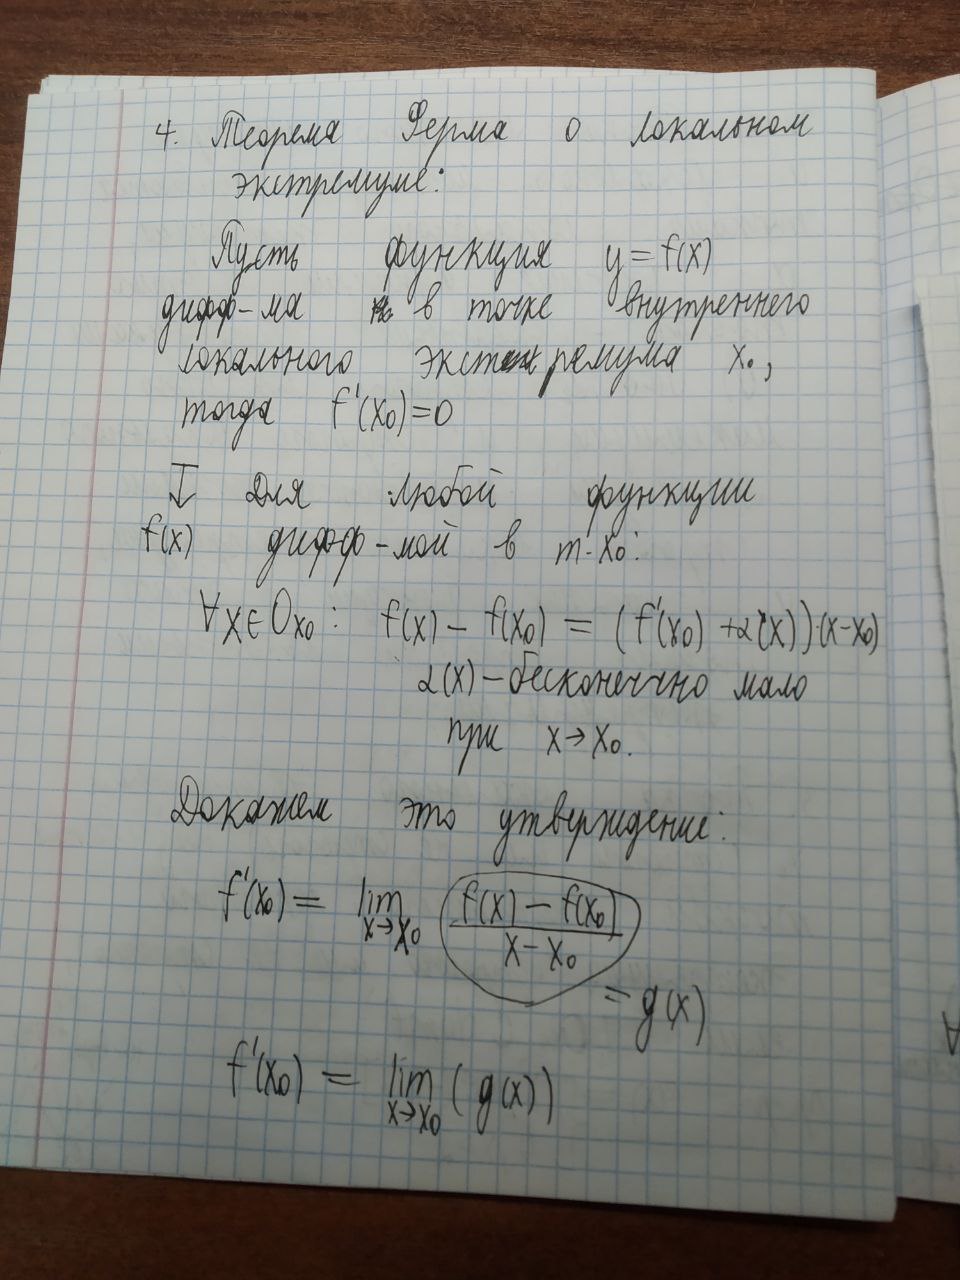 4. Теорема Ферма о локальном
экстремуме:
Пусть функция y = f(x)
дифф-ма в точке внутреннего
локального экстремума x₀,
тогда f'(x₀)=0
Для любой функции
f(x) дифф-мой в т. x₀:
∀x∈Oₓ₀: f(x) - f(x₀) = (f'(x₀) + α(x))·(x-x₀)
α(x) - бесконеччно мало
при x→x₀.
Докажем это утверждение:
f'(x₀) = lim x→x₀ (f(x) - f(x₀))/(x - x₀)
= g(x)
f'(x₀) = lim x→x₀ (g(x))